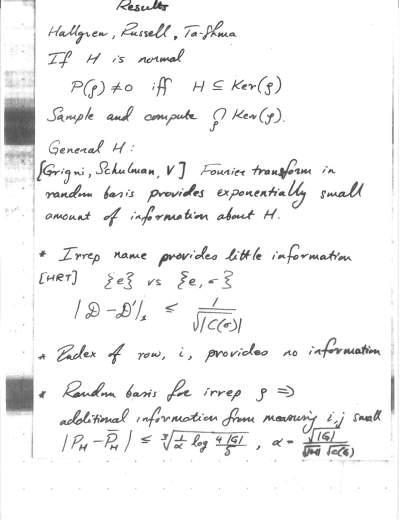 Results
Hallgren, Russell, Ta-Shma
If H is normal
P(ρ) ≠ 0 iff H ⊆ Ker(ρ)
Sample and compute ∩ρ Ker(ρ).
General H:
[Grigni, Schulman, V] Fourier transform in
random basis provides exponentially small
amount of information about H.
* Irrep name provides little information
[HRT] {e} vs {e, σ}
|D - D'|₁ ≤ 1/√|C(σ)|
* Index of row, i, provides no information
* Random basis for irrep ρ ⇒
additional information from measuring i,j small
|P_H - P̄_H| ≤ ∛(1/α log 4|G|/δ), α = √|G| / √|H| √C(G)